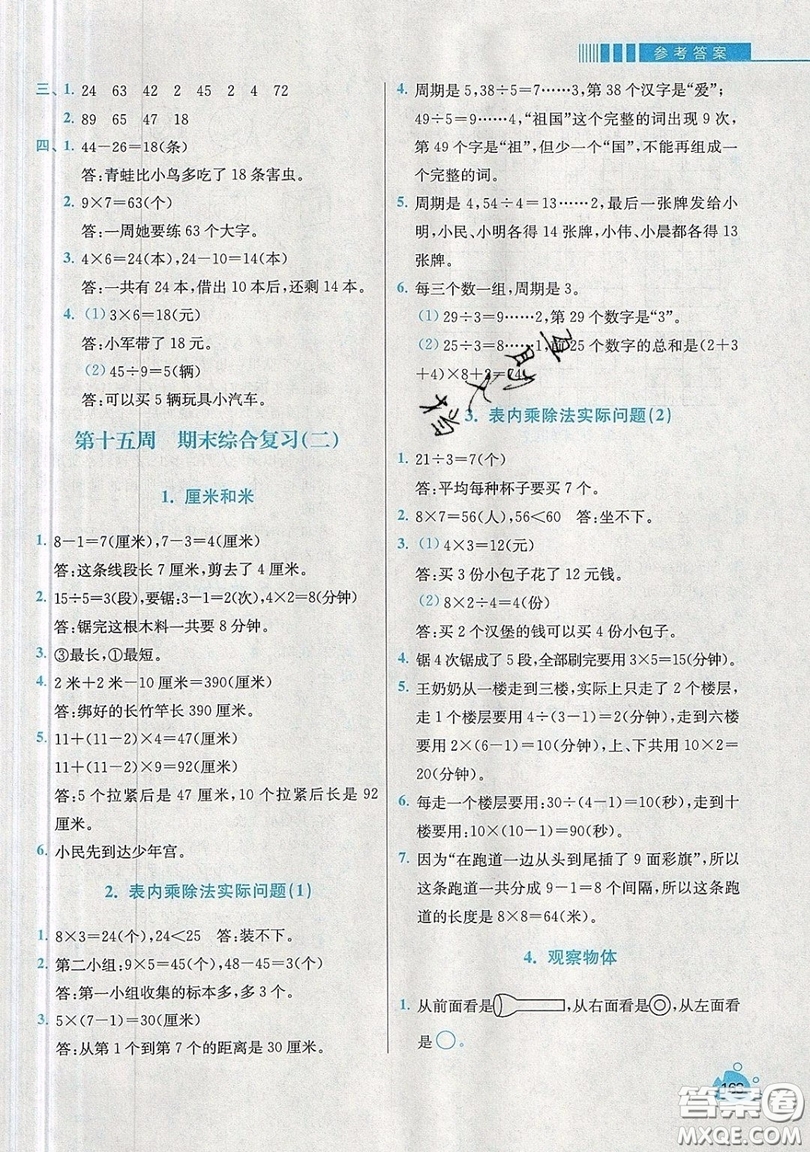 参考答案
三、1. 24 63 42 2 45 2 4 72
2. 89 65 47 18
四、1. 44-26=18(条)
答:青蛙比小鸟多吃了 18 条害虫。
2. 9×7=63(个)
答:一周她要练 63 个大字。
3. 4×6=24(本),24-10=14(本)
答:一共有 24 本,借出 10 本后,还剩 14 本。
4. (1) 3×6=18(元)
答:小军带了 18 元。
(2) 45÷9=5(辆)
答:可以买 5 辆玩具小汽车。
第十五周 期末综合复习(二)
1. 厘米和米
1. 8-1=7(厘米),7-3=4(厘米)
答:这条线段长 7 厘米,剪去了 4 厘米。
2. 15÷5=3(段),要锯:3-1=2(次),4×2=8(分钟)
答:锯完这根木料一共要 8 分钟。
3. ③最长,①最短。
4. 2 米+2 米-10 厘米=390(厘米)
答:绑好的长竹竿长 390 厘米。
5. 11+(11-2)×4=47(厘米)
11+(11-2)×9=92(厘米)
答:5 个拉紧后是 47 厘米,10 个拉紧后长是 92
厘米。
6. 小民先到达少年宫。
2. 表内乘除法实际问题(1)
1. 8×3=24(个),24<25 答:装不下。
2. 第二小组:9×5=45(个),48-45=3(个)
答:第一小组收集的标本多,多 3 个。
3. 5×(7-1)=30(厘米)
答:从第 1 个到第 7 个的距离是 30 厘米。
4. 周期是 5,38÷5=7……3,第 38 个汉字是“爱”;
49÷5=9……4,“祖国”这个完整的词出现 9 次,
第 49 个字是“祖”,但少一个“国”,不能再组成一
个完整的词。
5. 周期是 4,54÷4=13……2,最后一张牌发给小
明,小民、小明各得 14 张牌,小伟、小晨都各得 13
张牌。
6. 每三个数一组,周期是 3。
(1) 29÷3=9……2,第 29 个数字是“3”。
(2) 25÷3=8……1,前 25 个数字的总和是(2+3
+4)×8+2=74。
3. 表内乘除法实际问题(2)
1. 21÷3=7(个)
答:平均每种杯子要买 7 个。
2. 8×7=56(人),56<60 答:坐不下。
3. (1) 4×3=12(元)
答:买 3 份小包子花了 12 元钱。
(2) 8×2÷4=4(份)
答:买 2 个汉堡的钱可以买 4 份小包子。
4. 锯 4 次锯成了 5 段,全部刷完要用 3×5=15(分钟)。
5. 王奶奶从一楼走到三楼,实际上只走了 2 个楼层,
走 1 个楼层要用 4÷(3-1)=2(分钟),走到六楼
要用 2×(6-1)=10(分钟),上、下共用 10×2=
20(分钟)。
6. 每走一个楼层要用:30÷(4-1)=10(秒),走到十
楼要用:10×(10-1)=90(秒)。
7. 因为“在跑道一边从头到尾插了 9 面彩旗”,所以
这条跑道一共分成 9-1=8 个间隔,所以这条跑
道的长度是 8×8=64(米)。
4. 观察物体
1. 从前面看是 ,从右面看是 ,从左面看
是 。
答案圈
MXQE.COM